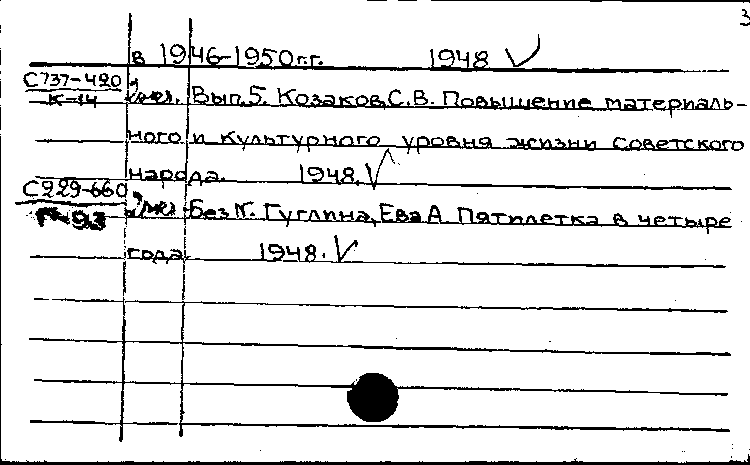 3
в 1946-1950г.г. 1948 V
С737-420
К-14 Вып.5. Козаков, С.В. Повышение материаль-
ного и культурного уровня жизни советского
народа. 1948. V
С229-660
Г-93 Без №. Гуглина, Ева А. Пятилетка в четыре
года. 1948. V